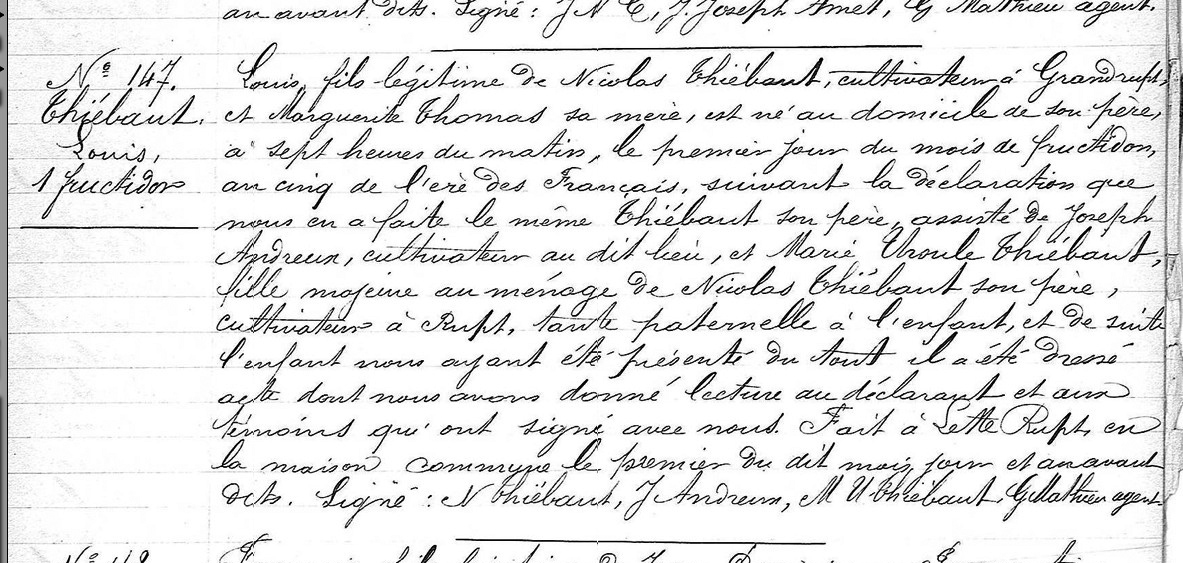 an avant dits. Signé : J N C, J. Joseph Amet, G Mathieu agent.
Nº 147.
Thiébaut.
Louis,
1 fructidor
Louis, fils légitime de Nicolas Thiébaut, cultivateur à Grandrupt,
et Marguerite Thomas sa mère, est né au domicile de son père,
à sept heures du matin, le premier jour du mois de fructidor,
an cinq de l'ère des Français, suivant la déclaration que
nous en a faite le même Thiébaut son père, assisté de Joseph
Andreux, cultivateur au dit lieu, et Marie Ursule Thiébaut,
fille majeure au ménage de Nicolas Thiébaut son père,
cultivateur à Rupt, tante paternelle à l'enfant, et de suite
l'enfant nous ayant été présenté du tout il a été dressé
acte dont nous avons donné lecture au déclarant et aux
témoins qu' ont signé avec nous. Fait à Rupt, en
la maison commune le premier du dit mois, jour et an avant
dits. Signé : N Thiébaut, J Andreux, M U Thiébaut, G Mathieu agent.